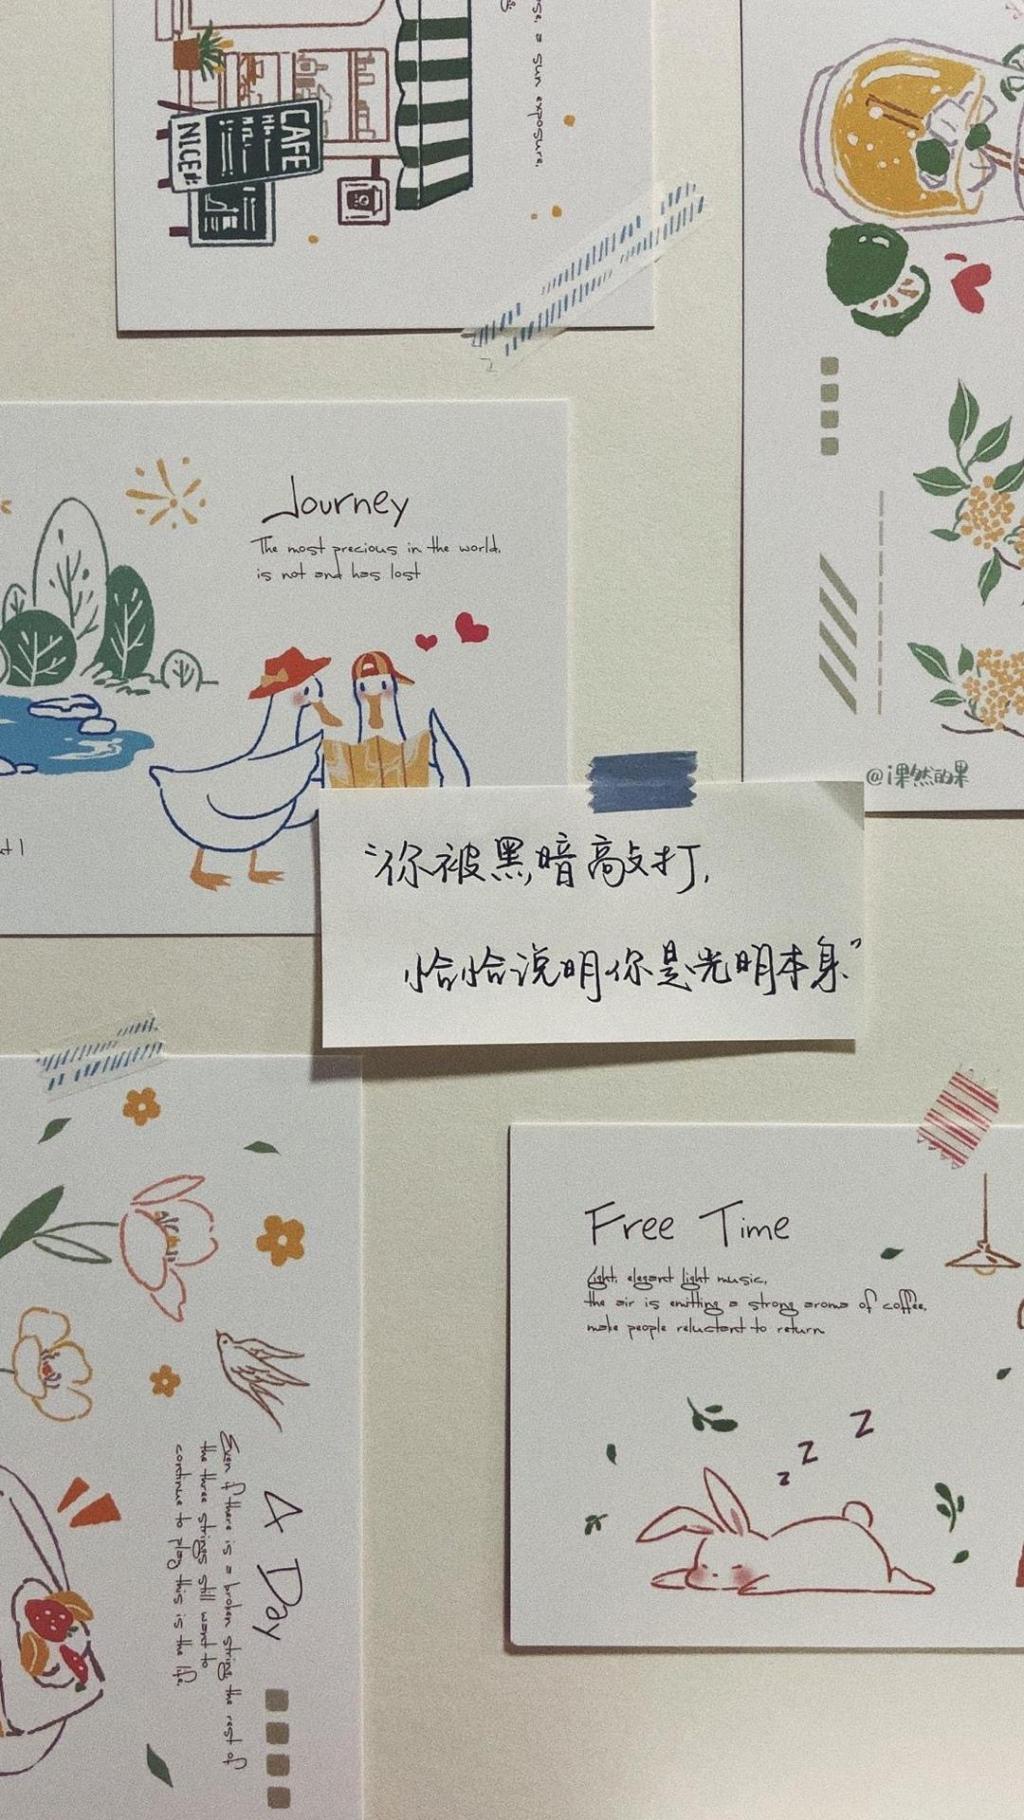 a sun exposure,
CAFE
NICE
Journey
The most precious in the world,
is not and has lost
@i果然的果
"你被黑暗敲打,
恰恰说明你是光明本身."
Free Time
Light, elegant light music,
the air is emitting a strong aroma of coffee,
make people reluctant to return
z z z
A Day
Even if there is a broken string, the rest of
the three strings still want to
continue to play this is the life.